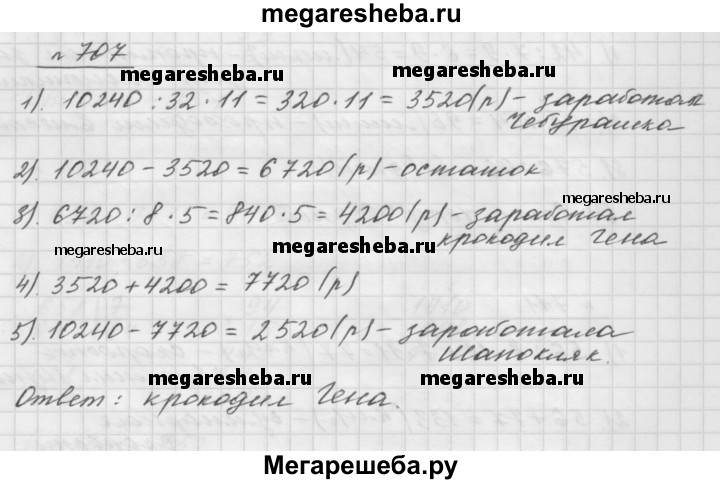 megaresheba.ru
№ 707
megaresheba.ru
1). 10240 : 32 · 11 = 320 · 11 = 3520 (р) - заработал
Чебурашка
megaresheba.ru
2). 10240 - 3520 = 6720 (р) - остаток
megaresheba.ru
3). 6720 : 8 · 5 = 840 · 5 = 4200 (р) - заработал
крокодил Гена
megaresheba.ru
megaresheba.ru
4). 3520 + 4200 = 7720 (р)
5). 10240 - 7720 = 2520 (р) - заработала
Шапокляк.
megaresheba.ru
megaresheba.ru
Ответ: крокодил Гена.
Мегарешеба.ру